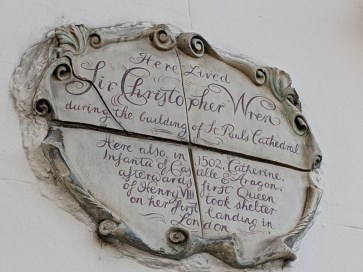 Here Lived
Sir Christopher Wren
during the building of St Pauls Cathedral.
Here also, in 1502, Catherine,
Infanta of Castille & Aragon,
afterwards first Queen
of Henry VIII took shelter
on her first landing in
London